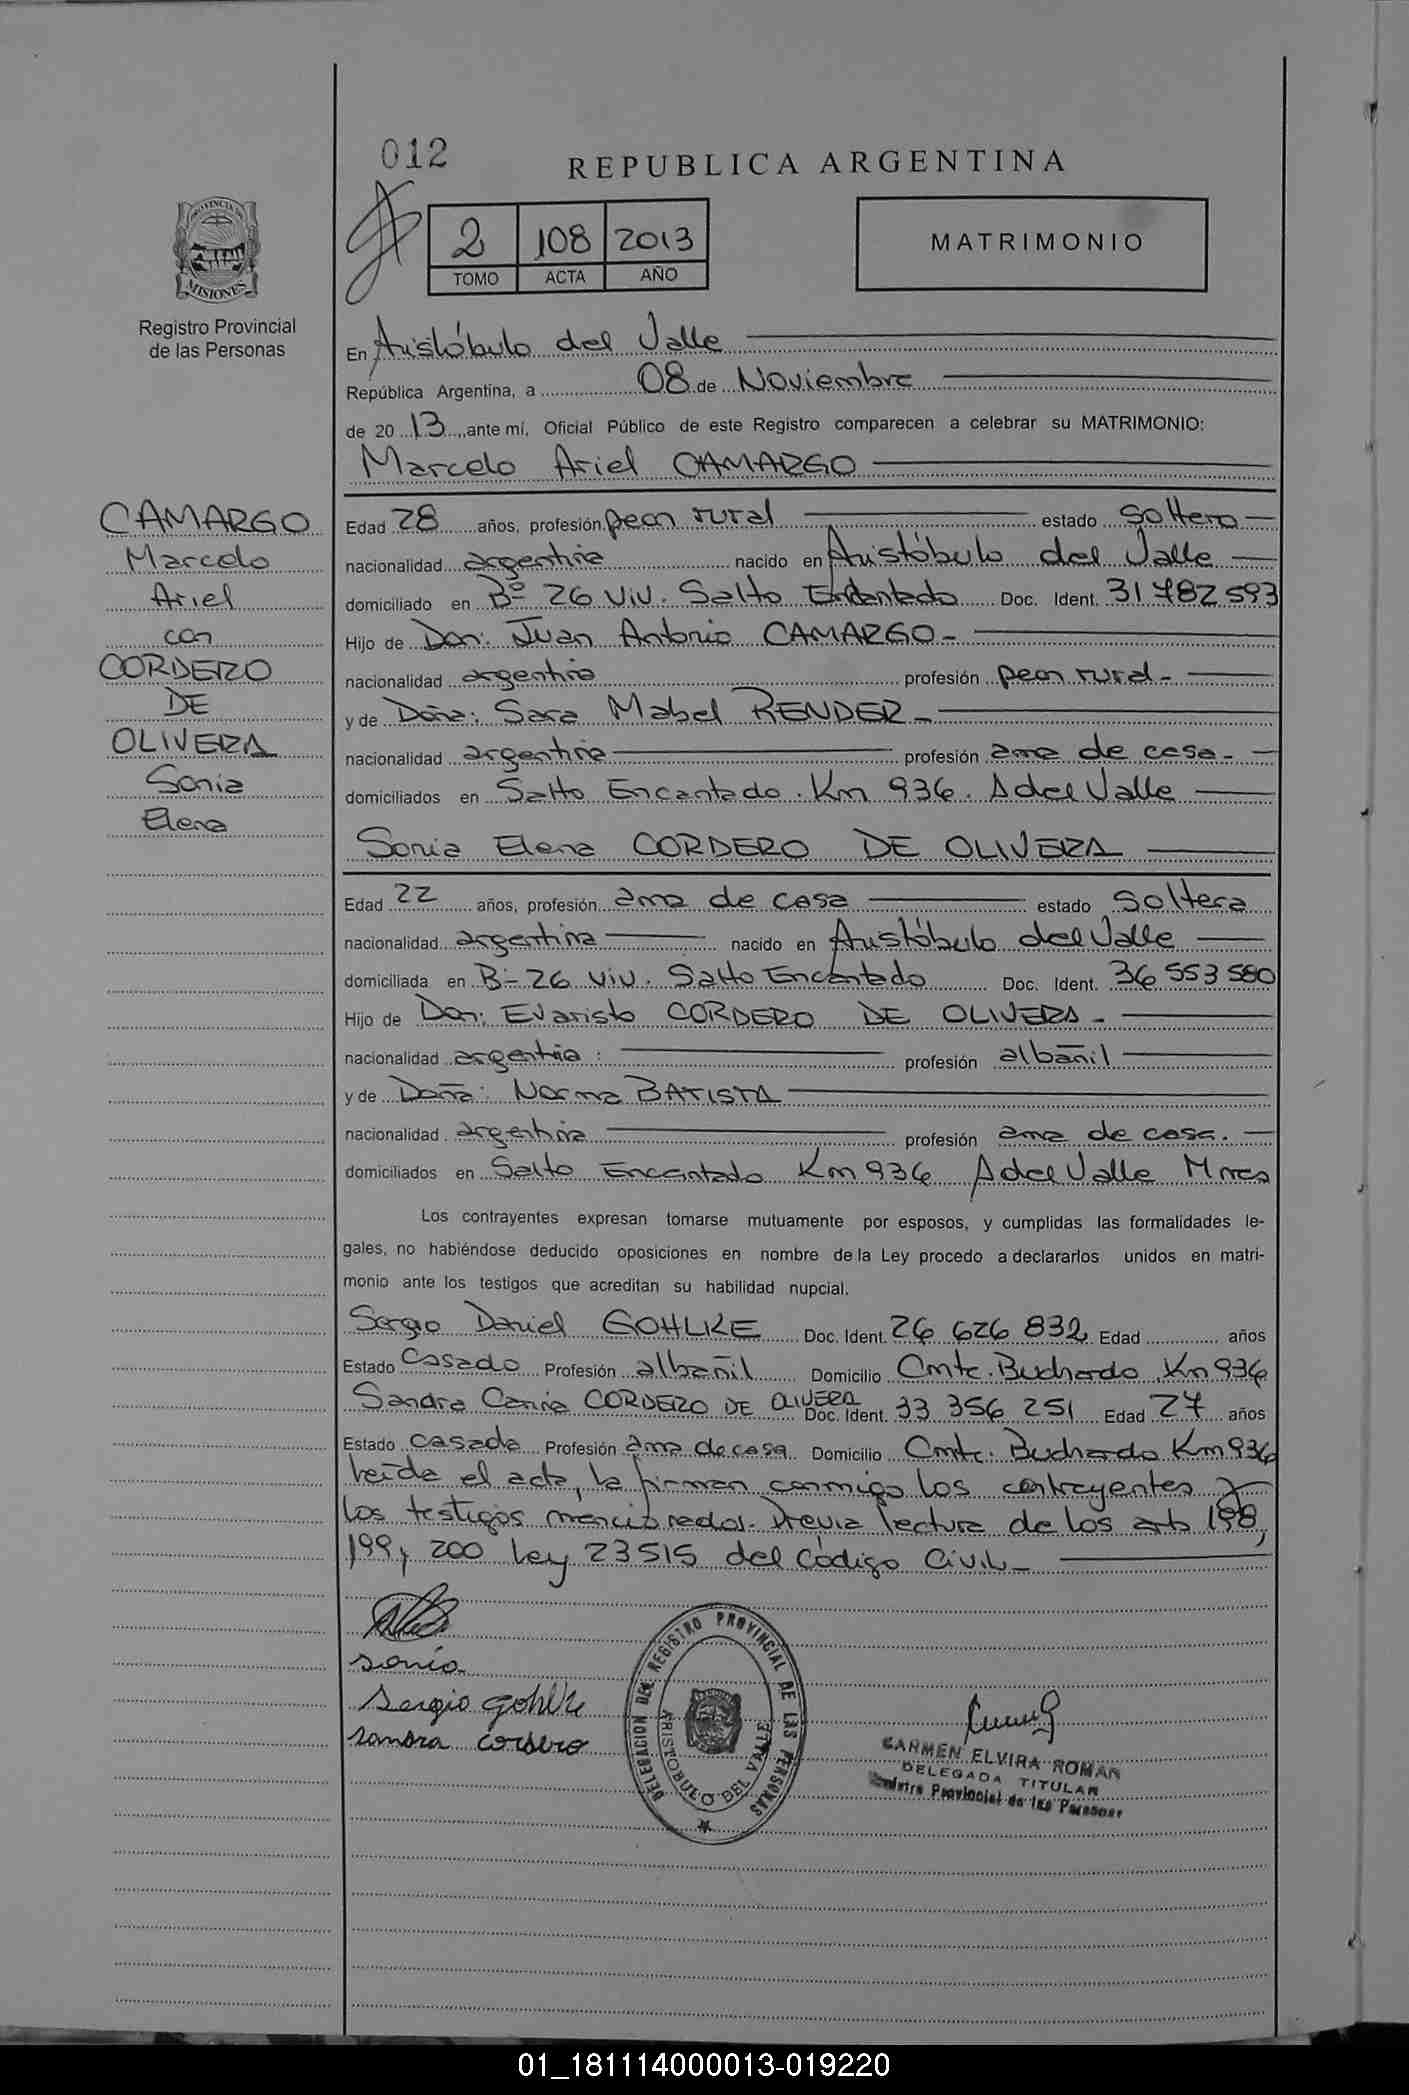 012
REPUBLICA ARGENTINA
2 108 2013
TOMO ACTA AÑO
MATRIMONIO
PROVINCIA DE
MISIONES
Registro Provincial
de las Personas
En Aristóbulo del Valle
República Argentina, a 08 de Noviembre
de 20 13 ,ante mí, Oficial Público de este Registro comparecen a celebrar su MATRIMONIO:
Marcelo Ariel CAMARGO
CAMARGO
Marcelo
Ariel
con
CORDERO
DE
OLIVERA
Sonia
Elena
Edad 28 años, profesión peon rural estado Soltero
nacionalidad argentina nacido en Aristóbulo del Valle
domiciliado en Bº 26 Viv. Salto Encantado Doc. Ident. 31 782 593
Hijo de Don: Juan Antonio CAMARGO-
nacionalidad argentina profesión peon rural-
y de Doña: Sara Mabel RENDER-
nacionalidad argentina profesión ama de casa-
domiciliados en Salto Encantado. Km 936. A del Valle
Sonia Elena CORDERO DE OLIVERA
Edad 22 años, profesión ama de casa estado Soltera
nacionalidad argentina nacido en Aristóbulo del Valle
domiciliada en B- 26 Viv. Salto Encantado Doc. Ident. 36 553 580
Hijo de Don: Evaristo CORDERO DE OLIVERA-
nacionalidad argentina: profesión albañil
y de Doña: Norma BATISTA
nacionalidad argentina profesión ama de casa.
domiciliados en Salto Encantado Km 936 A del Valle Mnes
Los contrayentes expresan tomarse mutuamente por esposos, y cumplidas las formalidades le-
gales, no habiéndose deducido oposiciones en nombre de la Ley procedo a declararlos unidos en matri-
monio ante los testigos que acreditan su habilidad nupcial.
Sergio Daniel GOHLKE Doc. Ident. 26 626 832 Edad años
Estado Casado Profesión albañil Domicilio Cmte. Buchardo Km 936
Sandra Carina CORDERO DE OLIVERA Doc. Ident. 33 356 251 Edad 27 años
Estado Casada Profesión ama de casa Domicilio Cmte. Buchardo Km 936
Leída el acta, la firman conmigo los contrayentes y
los testigos mencionados. Previa lectura de los arts 198,
199, 200 Ley 23515 del Código Civil-
sonia
Sergio gohlke
sandra cordero
DELEGACION DEL REGISTRO PROVINCIAL DE LAS PERSONAS
ARISTOBULO DEL VALLE
CARMEN ELVIRA ROMAN
DELEGADA TITULAR
Registro Provincial de las Personas
01_181114000013-019220